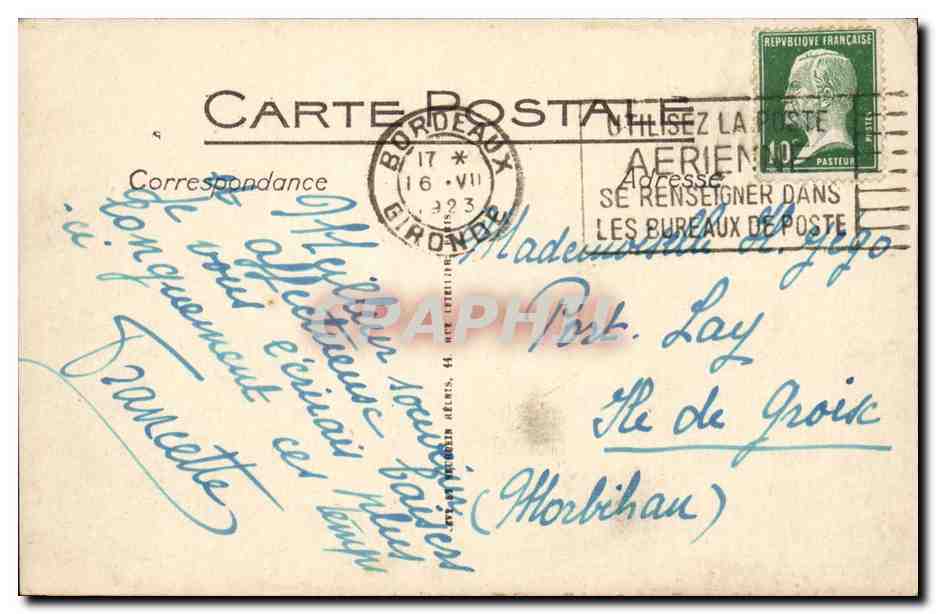 CARTE POSTALE
REPVBLIQUE FRANÇAISE
POSTES
10
PASTEUR
BORDEAUX
17 *
16 · VII
1923
GIRONDE
UTILISEZ LA POSTE
AERIENNE
SE RENSEIGNER DANS
LES BUREAUX DE POSTE
Correspondance
Adresse
Meilleur souvenir
affectueux baisers
et vous écrirais plus
longuement ces temps
ci.
Francette
44, RUE LETELLIER
Mademoiselle H. Gégo
Port. Lay
Ile de Groix
(Morbihan)
CPAPHIL